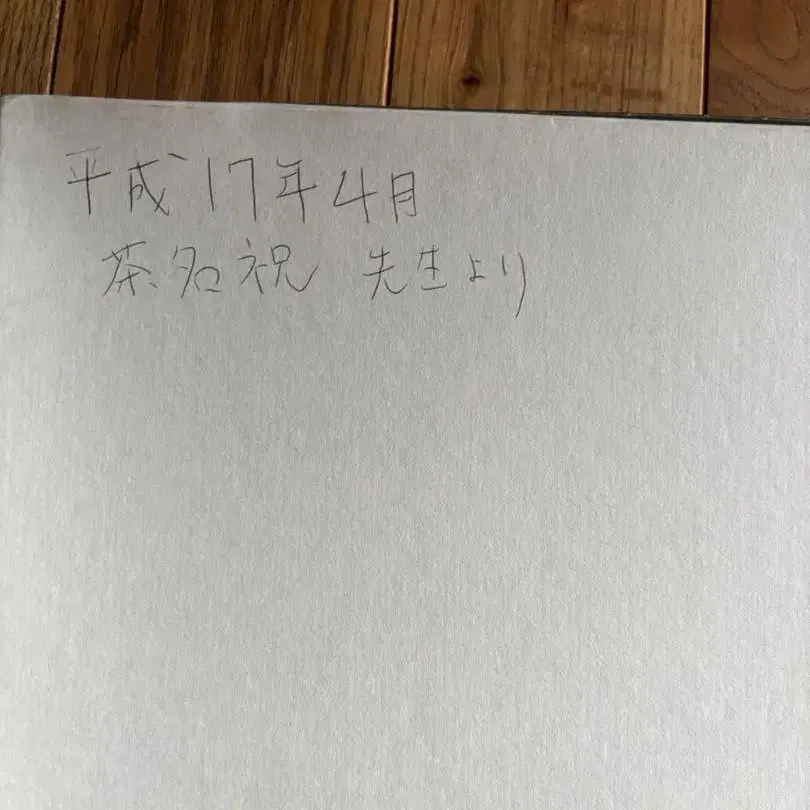 平成17年4月
茶名祝 先生より